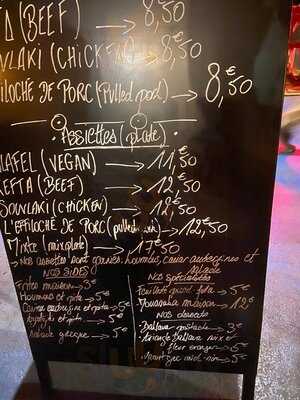 TA (BEEF) → 8,50
VLAKI (CHICKEN) → 8,50
FILOCHÉ DE PORC (Pulled → 8,50€
Assiettes (plate)
LAFEL (VEGAN) → 11,50€
KEFTA (BEEF) → 12,50€
SOUVLAKI (CHICKEN) → 12,50€
L'EFFILOCHÉ DE PORC (pulled → 12,50€
Mixte (mix plate) → 17€50
→ Nos assiettes sont garnies: houmous, caviar aubergines et salade
NOS SIDES
Frites maison → 3€
Houmous et pita → 5€
Caviar aubergine et pita → 5€
et pita → 5€
Salade grecque → 5€
NOS Spécialités
Feuilleté feta → 5€
Moussaka maison → 12€
Nos desserts
Baklava pistache → 3€
Triangle Baklava noix et
fleur oranger → 6€
Yaourt grec miel-noix → 5€